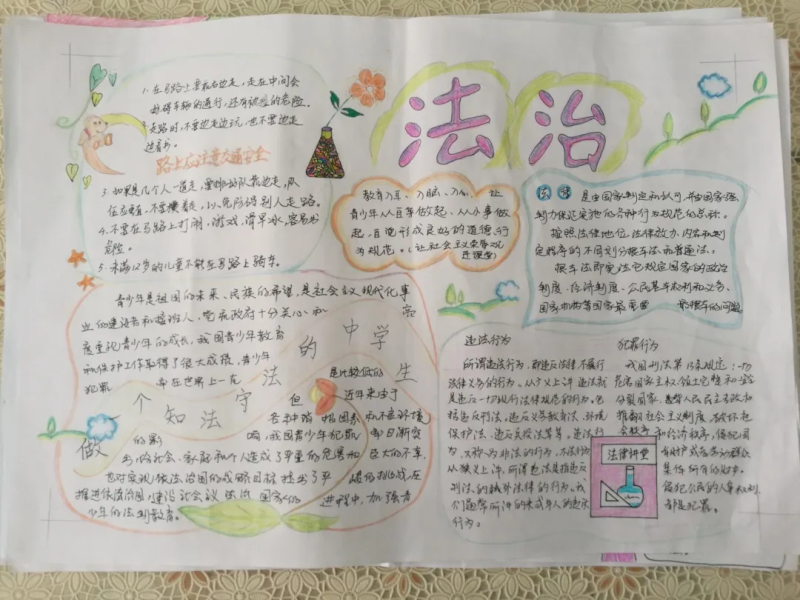 法治
1. 在马路上要靠右边走,走在中间会
妨碍车辆的通行,还有被撞的危险。
2. 走路时,不要边走边玩,也不要边走
边看书。
路上应注意交通安全
3. 如果是几个人一道走,要排好队靠边走,队
伍
不要横着走,以免防碍别人走路。
4. 不要在马路上打闹,游戏,滑旱冰,容易出
危险。
5. 未满12岁的儿童不能在马路上骑车。
教育刀年
让
青少年从自身做起、从小事做
起,自觉形成良好的道德行
为规范。(让社会主义荣辱观
进课堂)
法律
是由国家制定和认可,并由国家强
制力保证实施的各种行为规范的总称。
按照法律地位,法律效力,内容和制
定程序的不同划分根本法和普通法,
根本法即宪法它规定国家的政治
制度、经济制度、公民基本权利和义务、
国家机构等国家最重要
最根本的问题
青少年是祖国的未来、民族的希望,是社会主义现代化事
业的建设者和接班人,党和政府十分关心和
高
度重视青少年的成长,我国青少年教育
和保护工作取得了很大成绩,青少年
犯罪
率在世界上一直
是比较低的
但
近年来由于
做一个知法守法的中学生
各种
国家
环境
的影
响,我国青少年犯罪
却日渐突
出,给社会、家庭和个人造成了严重的危害和
巨大的不幸,
也对实现依法治国的战略目标提出了严
峻的挑战,在
推进依法治国,建设社会主义法治
国家的
进程中,加强青
少年的法制教育。
违法行为
所谓违法行为,即违反法律,不履行
法律义务的行为。从广义上讲,违法就
是违反一切现行法律规范的行为,包
括违反刑法、违反义务教育法、环境
保护法、违反兵役法等等。违法行
为,又称为非法的行为,
从狭义上讲,所谓违法是指违反
刑法的
法律的行为,我
们通常所讲的未成年人的违法
行为。
犯罪行为
我国刑法第13条规定:一切
危害国家主权、领土完整和安全
分裂国家、颠覆人民民主专政和
推翻社会主义制度、破坏社
会秩序和经济秩序,侵犯国
有财产或者劳动群众
集体所有的财产,
侵犯公民的人身权利
都是犯罪。
法律讲堂